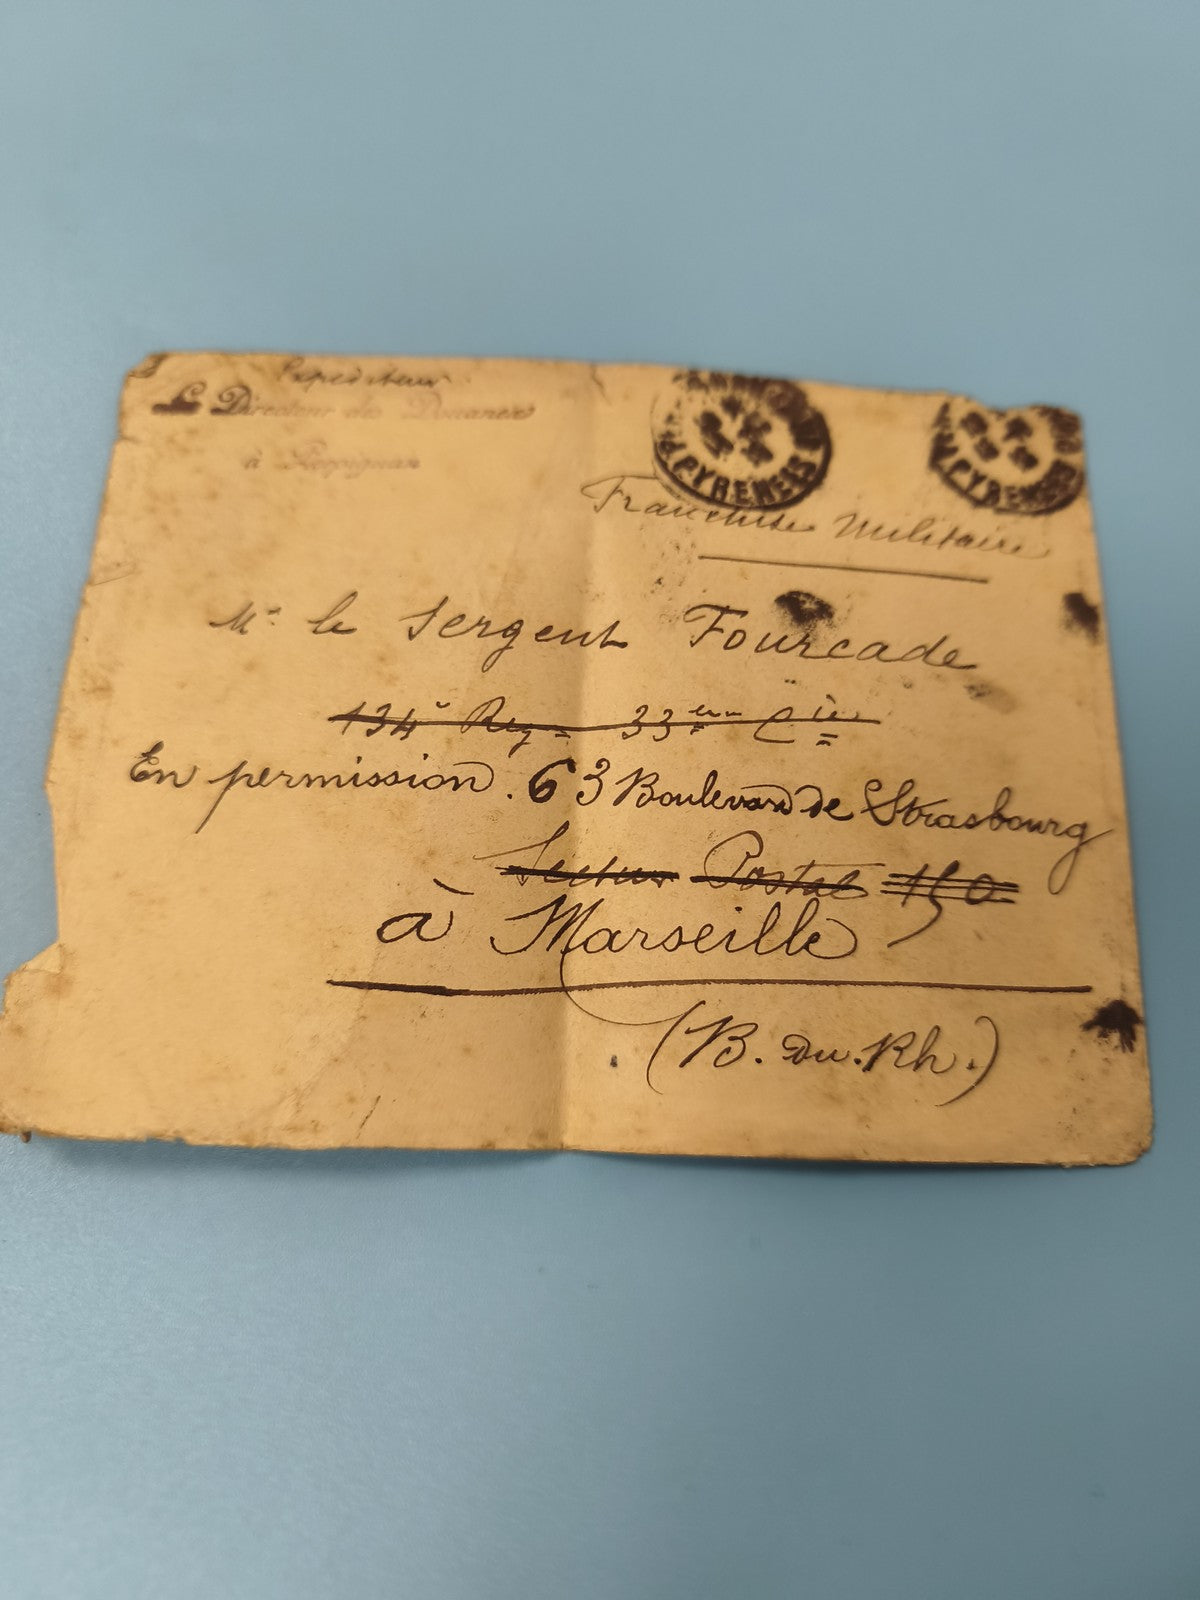 Expéditeur
Le Directeur des Douanes
à Perpignan
PYRENEES
PYRENEES
Franchise Militaire
Mr le Sergent Fourcade
134e Reg = 33eme Cie
En permission. 63 Boulevard de Strasbourg
Secteur Postal
à Marseille
(B. du. Rh.)